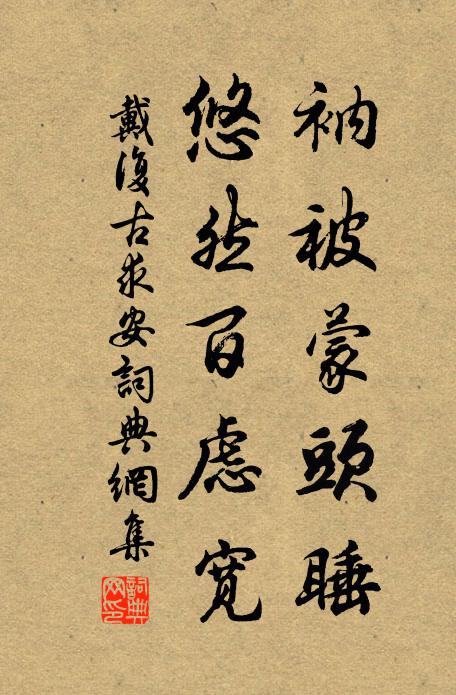 衲被蒙頭睡
悠然百慮寬
戴復古求安詞典網集
詞典
网印